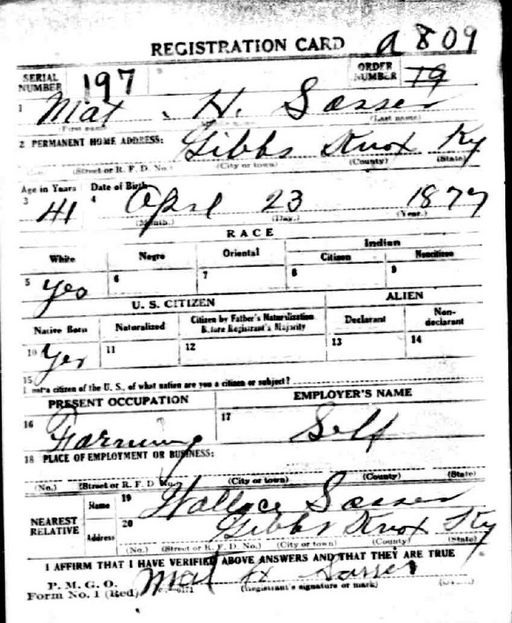 REGISTRATION CARD a 809
SERIAL NUMBER 197 ORDER NUMBER 19
1 Mat H. Sasser
(First name) (Last name)
2 PERMANENT HOME ADDRESS: Gibbs Knox Ky
(Street or R. F. D. No.) (City or town) (County) (State)
Age in Years Date of Birth
3 41 4 Aprl 23 1877
(Month.) (Day.) (Year.)
RACE
White Negro Oriental Indian
Citizen Noncitizen
5 Yes 6 7 8 9
U. S. CITIZEN ALIEN
Native Born Naturalized Citizen by Father's Naturalization Before Registrant's Majority Declarant Non-declarant
10 Yes 11 12 13 14
15
If not a citizen of the U. S., of what nation are you a citizen or subject?
PRESENT OCCUPATION EMPLOYER'S NAME
16 Farming 17 Self
18 PLACE OF EMPLOYMENT OR BUSINESS:
(No.) (Street or R. F. D. No.) (City or town) (County) (State)
NEAREST RELATIVE
Name 19 Wallace Sasser
Address 20 Gibbs Knox Ky
(No.) (Street or R. F. D. No.) (City or town) (County) (State)
I AFFIRM THAT I HAVE VERIFIED ABOVE ANSWERS AND THAT THEY ARE TRUE
P. M. G. O.
Form No. 1 (Red) Mat H Sasser
(Registrant's signature or mark)